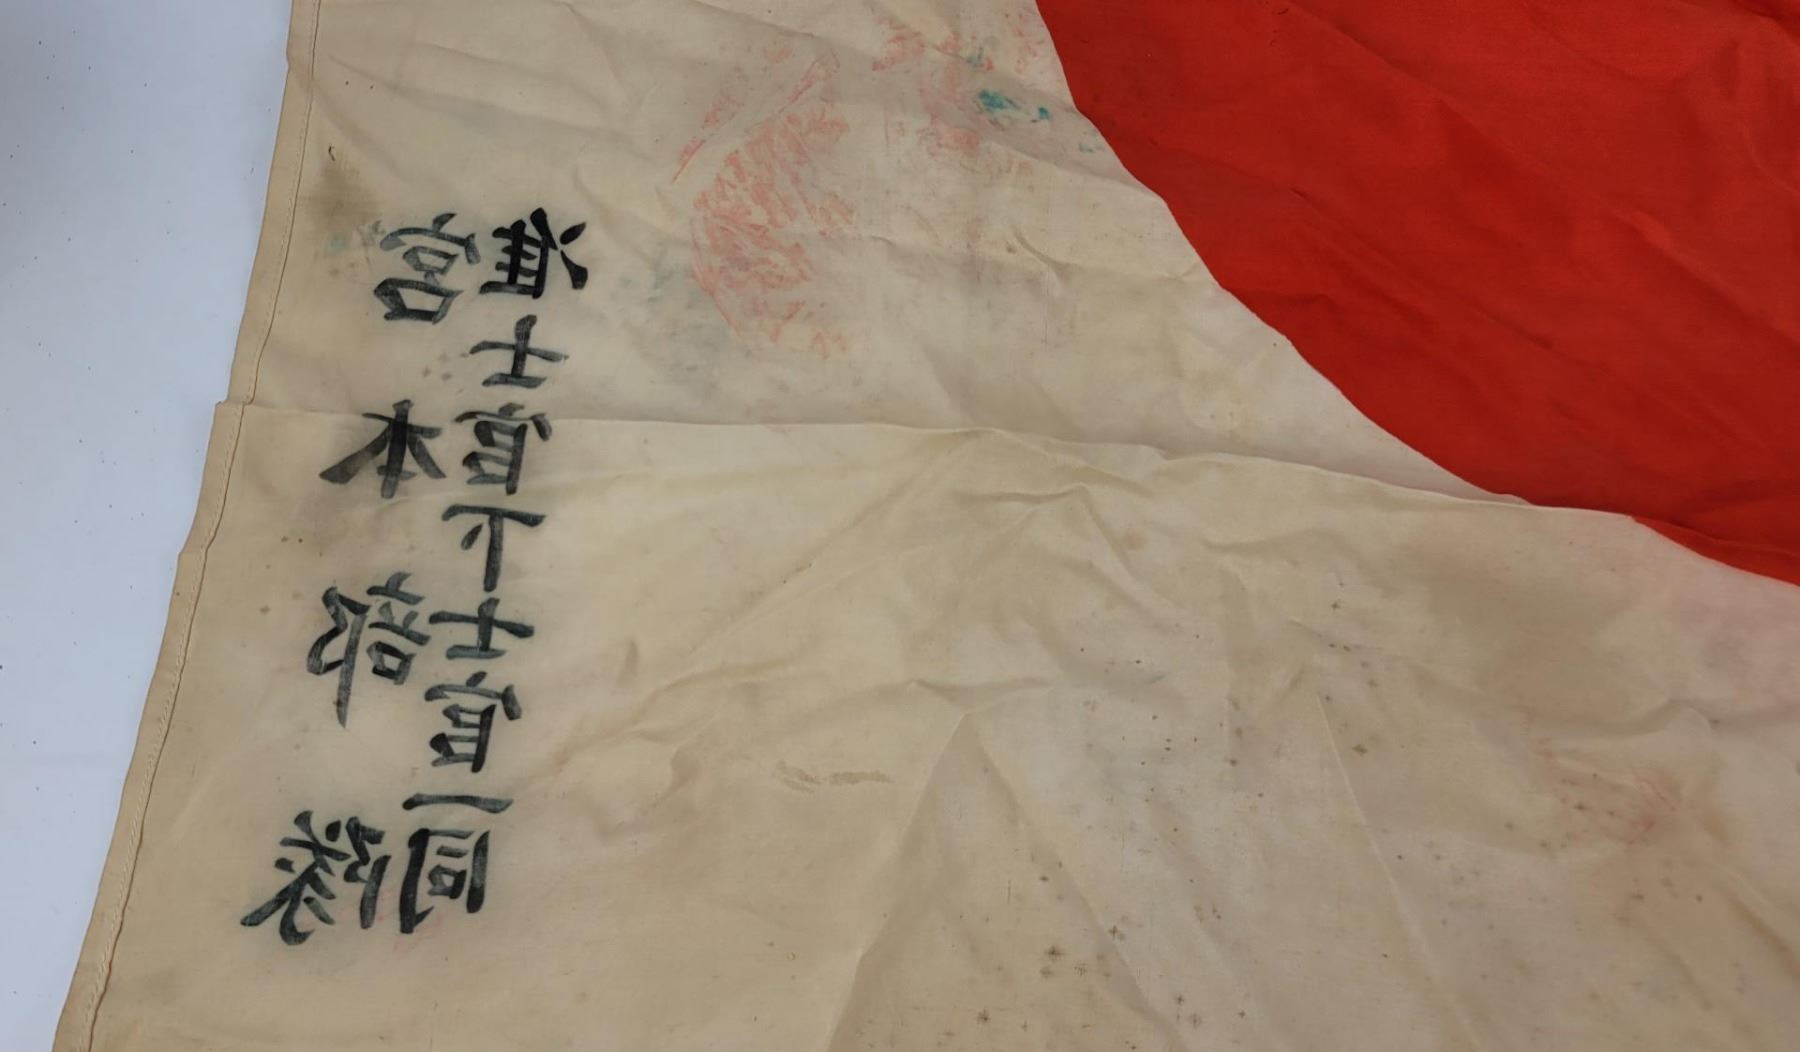 宮本部隊
准士官下士官一同